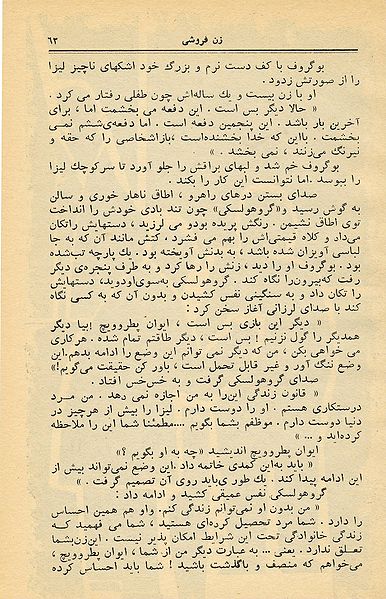 زن فروشی ۶۳
بوگروف با کف دست نرم و بزرگ خود اشکهای ناچیز لیزا
را از صورتش زدود .
او با زن بیست و یك ساله‌اش چون طفلی رفتار می کرد .
« حالا دیگر بس است . این دفعه می بخشمت اما ، برای
آخرین بار باشد . این پنجمین دفعه است . اما دفعه‌ی‌ششم نمی
بخشمت . بااین که خدا بخشنده‌است ،بازاشخاصی را که حقه و
نیرنگ می‌زنند ، نمی بخشد . »
بوگروف خم شد و لبهای براقش را جلو آورد تا سرکوچك لیزا
را ببوسد .اما نتوانست این کار را بکند .
صدای بستن درهای راهرو ، اطاق ناهار خوری و سالن
به گوش رسید و«گروهولسکی» چون تند بادی خودش را انداخت
توی اطاق نشیمن . رنگش پریده بودو می لرزید ، دستهایش راتکان
می‌داد و کلاه قیمتی‌اش را بهم می فشرد . کتش مانند آن که به جا
لباسی آویزان شده باشد ، به بدنش آویخته بود . یك پارچه تب‌شده
بود . بوگروف او را دید ، زنش را رها کرد و به طرف پنجره‌ی دیگر
رفت که‌بیرون‌را نگاه کند . گروهولسکی به‌سوی‌اودوید، دستهایش
را تکان داد و به سنگینی نفس کشیدن و بدون آن که به کسی نگاه
کند با صدای لرزانی آغاز سخن کرد :
« دیگر این بازی بس است ، ایوان پطروویچ !بیا دیگر
همدیگر را گول نزنیم ! بس است ، دیگر طاقتم تمام شده . هرکاری
می خواهی بکن ، من که دیگر نمی توانم این وضع را ادامه بدهم.این
وضع ننگ آور و غیر قابل تحمل است ، باور کن حقیقت می‌گویم!»
صدای گروهولسکی گرفت و به خس‌خس افتاد .
« قانون زندگی این‌را به من اجازه نمی دهد . من مرد
درستکاری هستم . او را دوست دارم . لیزا را بیش از هرچیز در
دنیا دوست دارم . موظفم بشما بگویم ....مطمئنا شما این را ملاحظه
کرده‌اید و ... »
ایوان پطروویچ اندیشید «چه به او بگویم ؟»
« باید به‌این کمدی خاتمه داد .این وضع نمی‌تواند بیش از
این ادامه پیدا کند . یك طور ی‌باید روی آن تصمیم گرفت . »
گروهولسکی نفس عمیقی کشید و ادامه داد :
« من بدون او نمی‌توانم زندگی کنم. واو هم همین احساس
را دارد . شما مرد تحصیل کرده‌ای هستید ، شما می فهمید کـه
زندگی خانوادگی تحت این شرایط امکان پذیر نیست . این‌زن‌بشما
تعـلق ندارد . یعنی ... به عبارت دیگر من از شما ، ایوان پطروویچ ،
می‌خواهم که منصف و باگذشت باشید ! شما باید احساس کرده